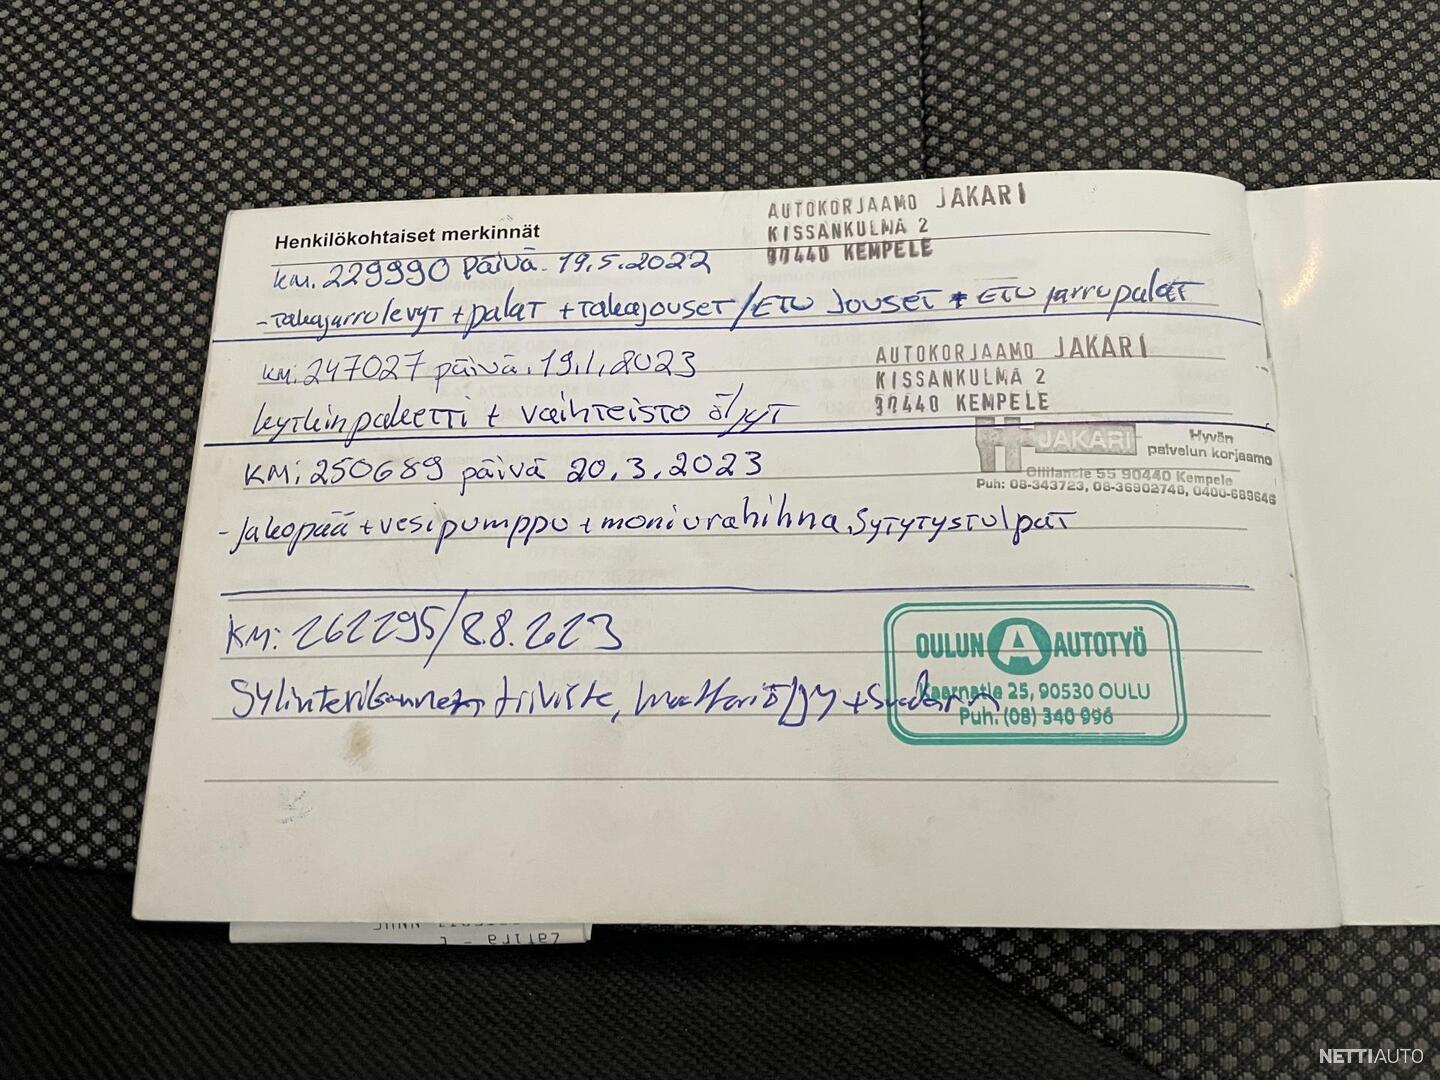 Henkilökohtaiset merkinnät
AUTOKORJAAMO JAKARI
KISSANKULMA 2
97440 KEMPELE
km. 229990 Päivä. 19.5.2022
-Takajarrulevyt + palat + Takajouset / ETU Jouset * ETU jarrupalat
km: 247027 päivä. 19.1.2023
AUTOKORJAAMO JAKARI
KISSANKULMA 2
97440 KEMPELE
kytkinpaketti + vaihteisto öljyt
JAKARI
Hyvän
palvelun korjaamo
Ollilantie 55 90440 Kempele
Puh: 08-343723, 08-36902748, 0400-689646
KM: 250689 päivä 20.3.2023
-Jakopää + vesipumppu + moniurahihna, Sytytystulpat
KM: 262295/8.8.2023
OULUN A AUTOTYÖ
Kaarnatie 25, 90530 OULU
Puh. (08) 340 996
Sylinterikannen tiiviste, moottoriöljy + Suodatin
Zafira -
NETTIAUTO